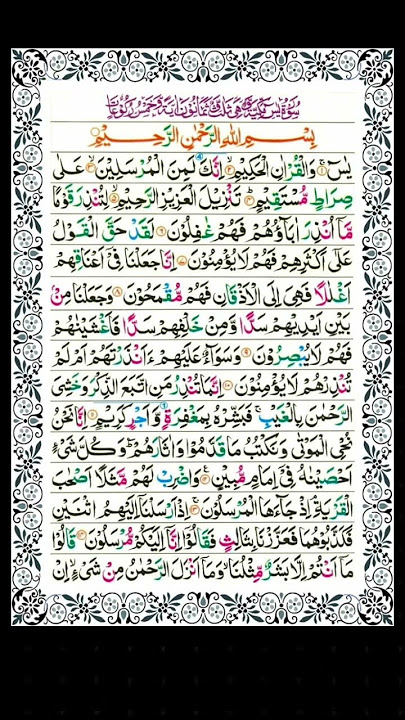 سُوْرَةُ يٰسٓ مَكِّيَّةٌ وَّهِيَ ثَلٰثٌ وَّثَمَانُوْنَ اٰيَةً وَّخَمْسُ رُكُوْعَاتٍ
بِسْمِ اللهِ الرَّحْمٰنِ الرَّحِيْمِ
يٰسٓ ۝۱ وَالْقُرْاٰنِ الْحَكِيْمِ ۝۲ اِنَّكَ لَمِنَ الْمُرْسَلِيْنَ ۝۳ عَلٰى
صِرَاطٍ مُّسْتَقِيْمٍ ۝۴ تَنْزِيْلَ الْعَزِيْزِ الرَّحِيْمِ ۝۵ لِتُنْذِرَ قَوْمًا
مَّاۤ اُنْذِرَ اٰبَآؤُهُمْ فَهُمْ غٰفِلُوْنَ ۝۶ لَقَدْ حَقَّ الْقَوْلُ
عَلٰۤى اَكْثَرِهِمْ فَهُمْ لَا يُؤْمِنُوْنَ ۝۷ اِنَّا جَعَلْنَا فِيْۤ اَعْنَاقِهِمْ
اَغْلٰلًا فَهِيَ اِلَى الْاَذْقَانِ فَهُمْ مُّقْمَحُوْنَ ۝۸ وَجَعَلْنَا مِنْۢ
بَيْنِ اَيْدِيْهِمْ سَدًّا وَّمِنْ خَلْفِهِمْ سَدًّا فَاَغْشَيْنٰهُمْ
فَهُمْ لَا يُبْصِرُوْنَ ۝۹ وَسَوَآءٌ عَلَيْهِمْ ءَاَنْذَرْتَهُمْ اَمْ لَمْ
تُنْذِرْهُمْ لَا يُؤْمِنُوْنَ ۝۱۰ اِنَّمَا تُنْذِرُ مَنِ اتَّبَعَ الذِّكْرَ وَخَشِيَ
الرَّحْمٰنَ بِالْغَيْبِ ۚ فَبَشِّرْهُ بِمَغْفِرَةٍ وَّاَجْرٍ كَرِيْمٍ ۝۱۱ اِنَّا نَحْنُ
نُحْيِ الْمَوْتٰى وَنَكْتُبُ مَا قَدَّمُوْا وَاٰثَارَهُمْ ۚ وَكُلَّ شَيْءٍ
اَحْصَيْنٰهُ فِيْۤ اِمَامٍ مُّبِيْنٍ ۝۱۲ وَاضْرِبْ لَهُمْ مَّثَلًا اَصْحٰبَ
الْقَرْيَةِ ۘ اِذْ جَآءَهَا الْمُرْسَلُوْنَ ۝۱۳ اِذْ اَرْسَلْنَاۤ اِلَيْهِمُ اثْنَيْنِ
فَكَذَّبُوْهُمَا فَعَزَّزْنَا بِثَالِثٍ فَقَالُوْۤا اِنَّاۤ اِلَيْكُمْ مُّرْسَلُوْنَ ۝۱۴ قَالُوْا
مَاۤ اَنْتُمْ اِلَّا بَشَرٌ مِّثْلُنَا ۙ وَمَاۤ اَنْزَلَ الرَّحْمٰنُ مِنْ شَيْءٍ ۙ اِنْ